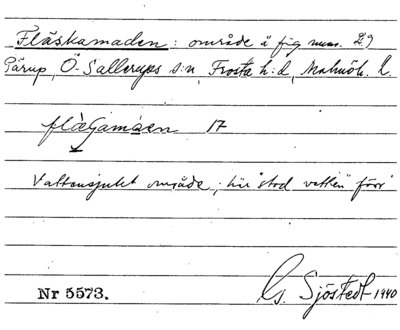 Fläskamaden: område å fig num. 29
Pärup, Ö. Sallerups s:n, Frosta h:d, Malmöh. l.
17
Vattensjukt område; här "stod vatten" förr
Nr 5573.
G. Sjöstedt 1940